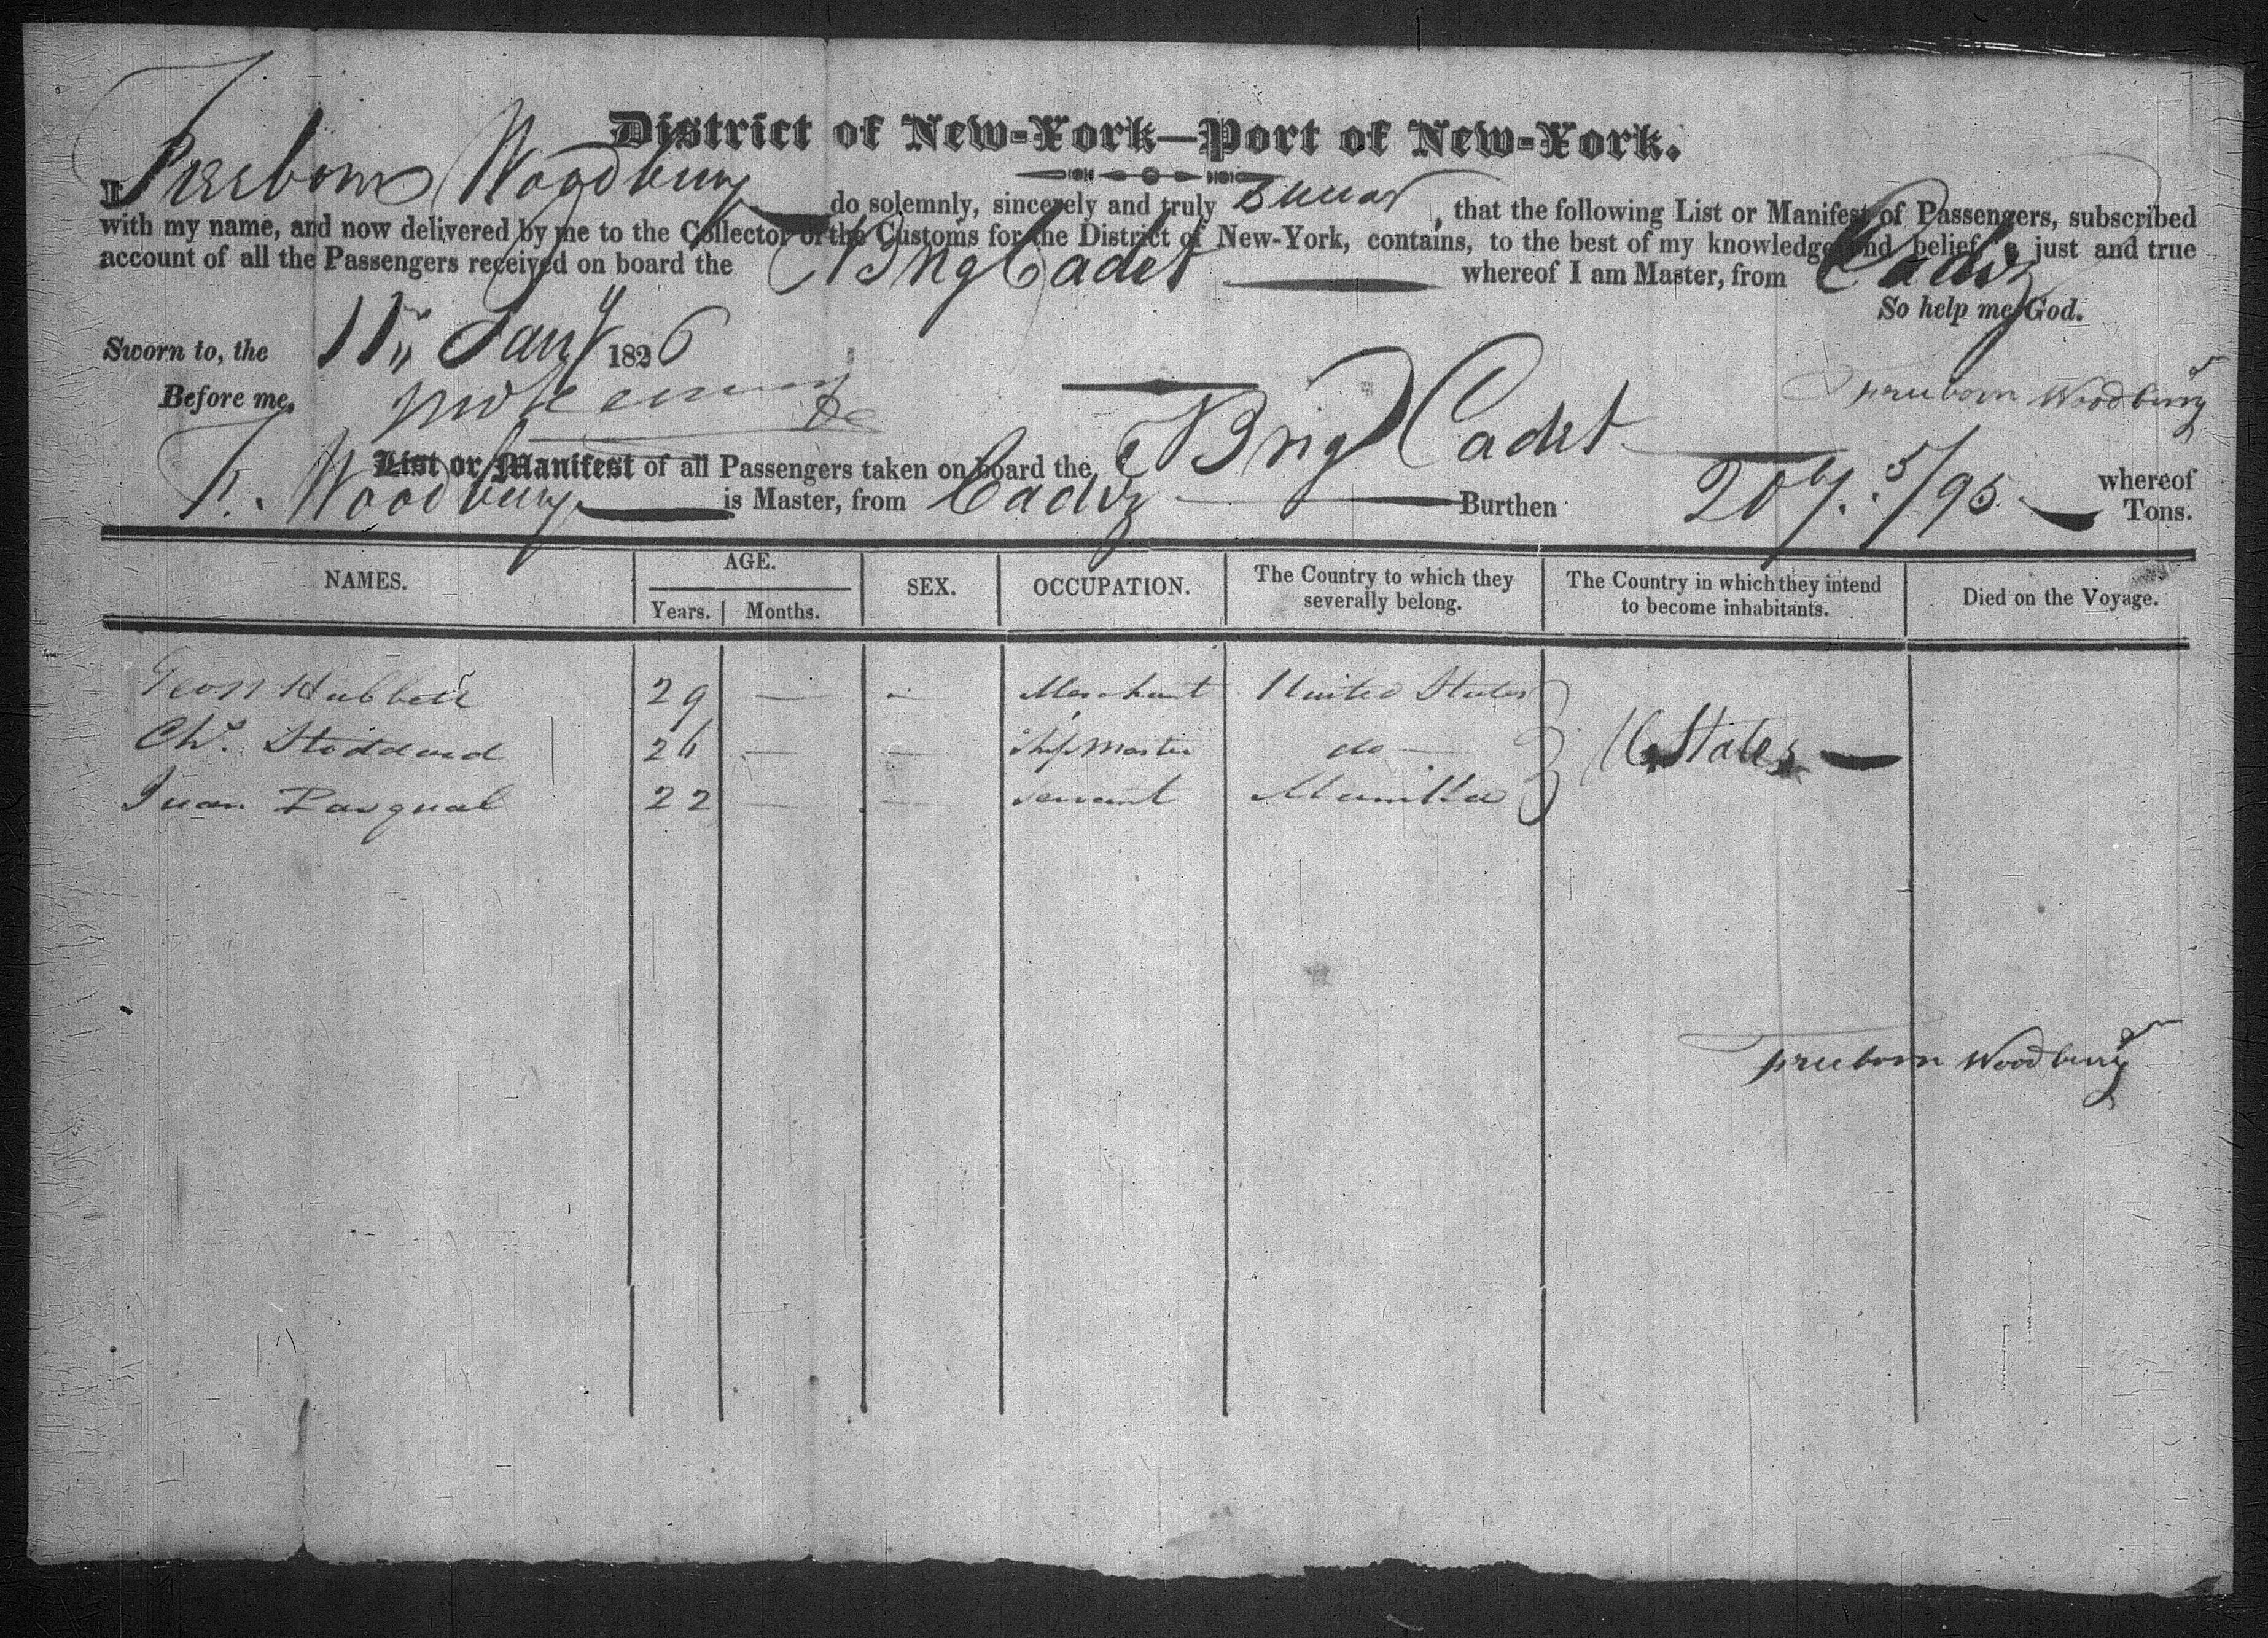 District of New-York—Port of New-York.
I, Freeborn Woodbury do solemnly, sincerely and truly swear, that the following List or Manifest of Passengers, subscribed
with my name, and now delivered by me to the Collector of the Customs for the District of New-York, contains, to the best of my knowledge and belief, a just and true
account of all the Passengers received on board the Brig Cadet whereof I am Master, from Cadiz
So help me God.
Sworn to, the Jany 1826
Before me, Freeborn Woodbury
List or Manifest of all Passengers taken on board the Brig Cadet whereof
F. Woodbury is Master, from Cadiz Burthen 5/95 Tons.
NAMES. AGE. Years. Months. SEX. OCCUPATION. The Country to which they severally belong. The Country in which they intend to become inhabitants. Died on the Voyage.
Hubbell 29 — — Merchant United States
Chs. Stoddard 26 — — Ship Master do — U States —
Juan Pasqual 22 — — Servant Manilla
Freeborn Woodbury